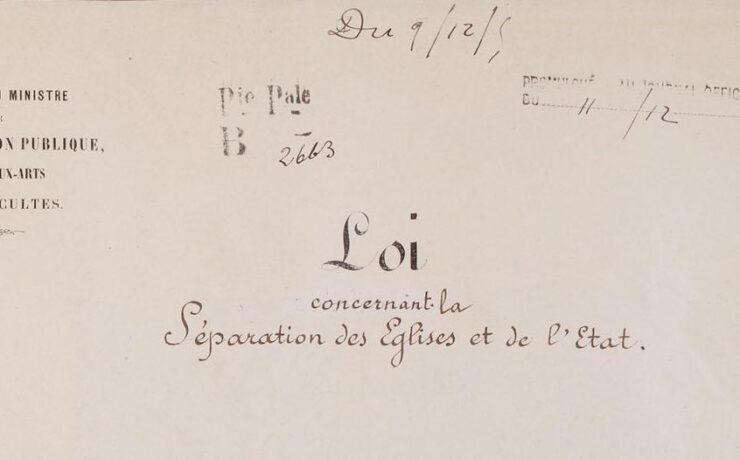 Du 9/12/5
MINISTRE
ON PUBLIQUE,
UX-ARTS
CULTES.
Pie Pale
B 2663
PROMULGUÉ AU JOURNAL OFFIC
DU 11/12
Loi
concernant la
Séparation des Eglises et de l'Etat.